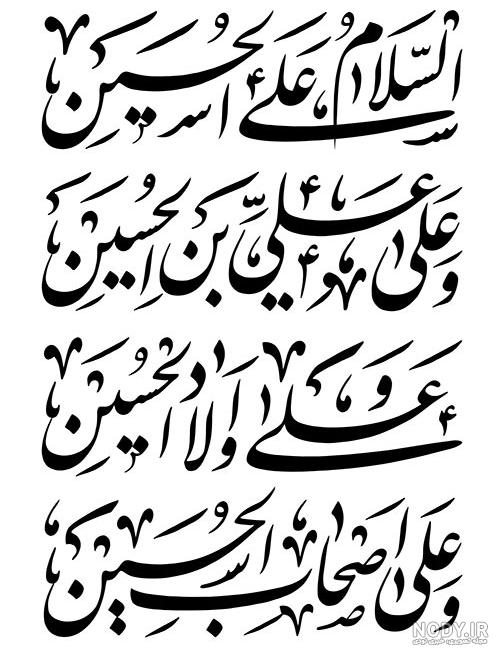 السلام علی الحسین
وعلی علي بن الحسین
وعلی اولاد الحسین
وعلی اصحاب الحسین
NODY.IR